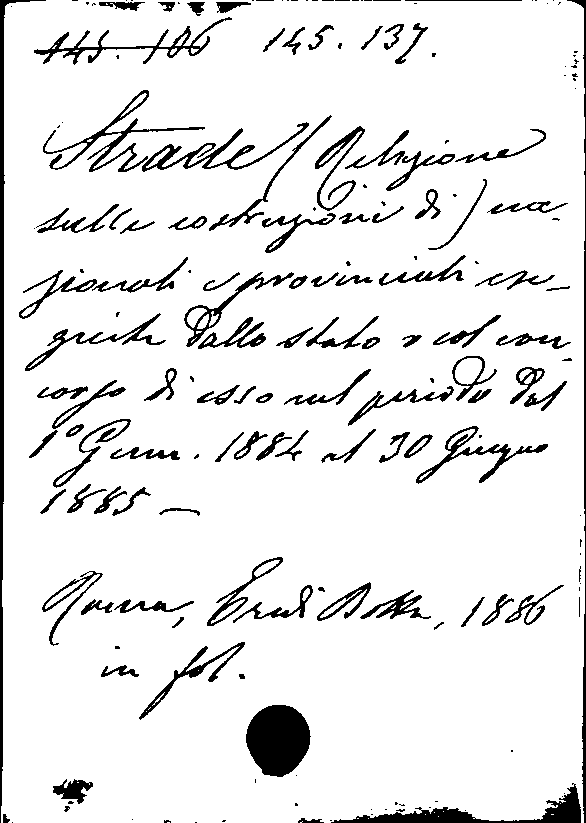 145. 106 145. 137.
Strade (Relazione
sulle costruzioni di) na-
zionali e provinciali ese-
guite dallo stato o col con-
corso di esso nel periodo dal
1° Genn. 1884 al 30 Giugno
1885 —
Roma, Eredi Botta, 1886
in fol.